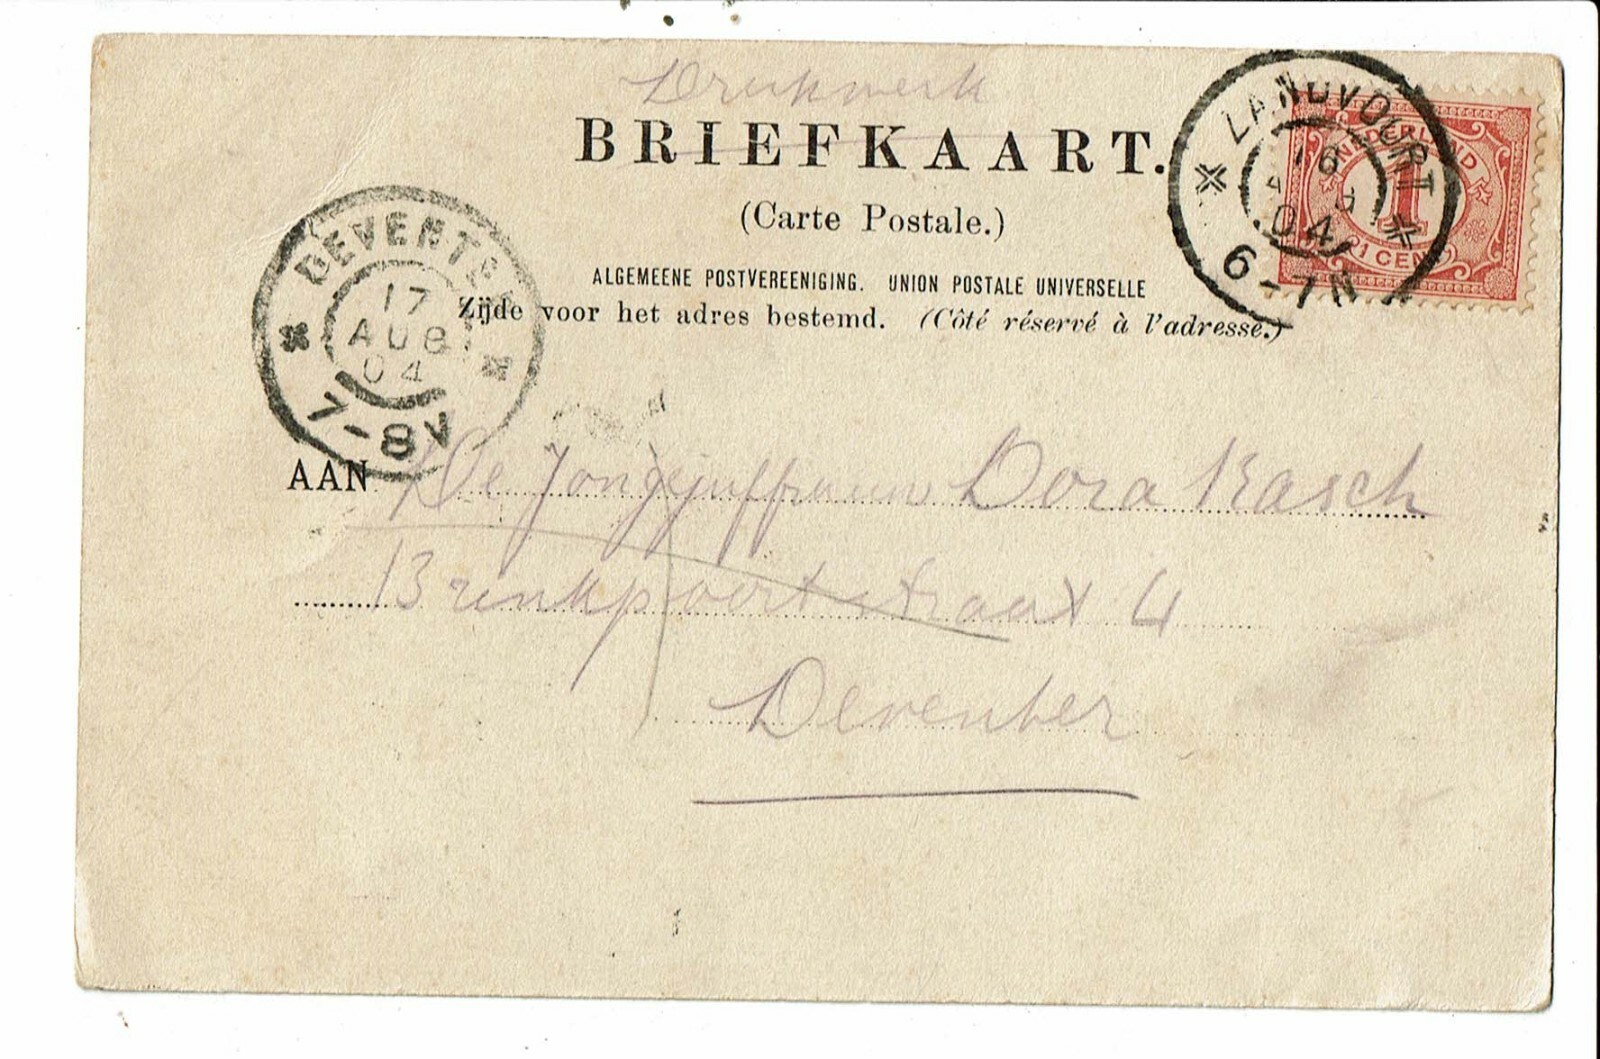 Drukwerk
BRIEFKAART.
(Carte Postale.)
ALGEMEENE POSTVEREENIGING. UNION POSTALE UNIVERSELLE
Zijde voor het adres bestemd. (Côté réservé à l'adresse.)
ZANDVOORT
16
AUG
04
6-7N
NEDERLAND
1
1 CENT
DEVENTER
17
AUG
04
7-8V
AAN De Jongejuffrouw Dora Kasch
Brinkpoortstraat 4
Deventer